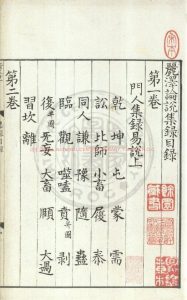 麗澤論說集錄目錄
第一卷
門人集錄易說上
乾 坤 屯 蒙 需
訟 比師 小畜 履 泰
同人 謙 豫 隨 蠱
臨 觀 噬嗑 賁 剥
復 无妄 大畜 頤 大過
習坎 離
第二卷